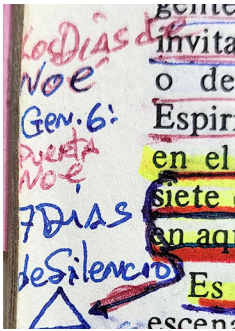 Los DIAS de
NOÉ
Gen. 6:
PUERTA
NOÉ
7 DIAS
de SilENCIO
gente
invita
o de
Espiri
en el
siete
en aqu
Es
escena